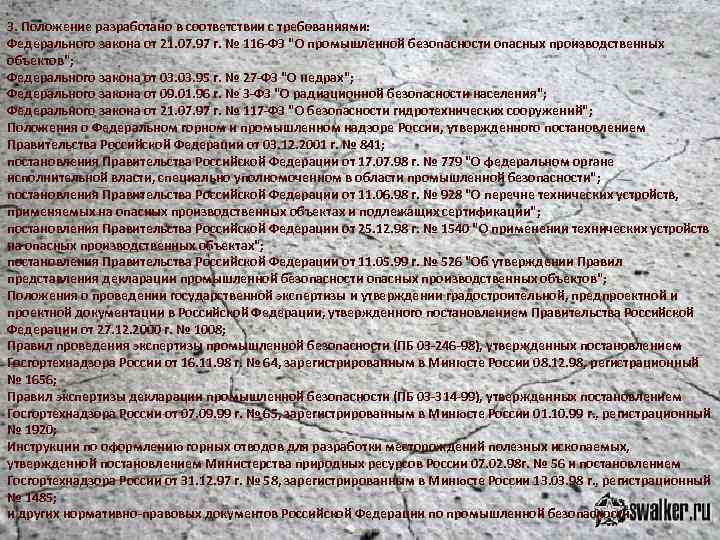 3. Положение разработано в соответствии с требованиями:
Федерального закона от 21.07.97 г. № 116-ФЗ "О промышленной безопасности опасных производственных
объектов";
Федерального закона от 03.03.95 г. № 27-ФЗ "О недрах";
Федерального закона от 09.01.96 г. № 3-ФЗ "О радиационной безопасности населения";
Федерального закона от 21.07.97 г. № 117-ФЗ "О безопасности гидротехнических сооружений";
Положения о Федеральном горном и промышленном надзоре России, утвержденного постановлением
Правительства Российской Федерации от 03.12.2001 г. № 841;
постановления Правительства Российской Федерации от 17.07.98 г. № 779 "О федеральном органе
исполнительной власти, специально уполномоченном в области промышленной безопасности";
постановления Правительства Российской Федерации от 11.06.98 г. № 928 "О перечне технических устройств,
применяемых на опасных производственных объектах и подлежащих сертификации";
постановления Правительства Российской Федерации от 25.12.98 г. № 1540 "О применении технических устройств
на опасных производственных объектах";
постановления Правительства Российской Федерации от 11.05.99 г. № 526 "Об утверждении Правил
представления декларации промышленной безопасности опасных производственных объектов";
Положения о проведении государственной экспертизы и утверждении градостроительной, предпроектной и
проектной документации в Российской Федерации, утвержденного постановлением Правительства Российской
Федерации от 27.12.2000 г. № 1008;
Правил проведения экспертизы промышленной безопасности (ПБ 03-246-98), утвержденных постановлением
Госгортехнадзора России от 16.11.98 г. № 64, зарегистрированным в Минюсте России 08.12.98, регистрационный
№ 1656;
Правил экспертизы декларации промышленной безопасности (ПБ 03-314-99), утвержденных постановлением
Госгортехнадзора России от 07.09.99 г. № 65, зарегистрированным в Минюсте России 01.10.99 г., регистрационный
№ 1920;
Инструкции по оформлению горных отводов для разработки месторождений полезных ископаемых,
утвержденной постановлением Министерства природных ресурсов России 07.02.98г. № 56 и постановлением
Госгортехнадзора России от 31.12.97 г. № 58, зарегистрированным в Минюсте России 13.03.98 г., регистрационный
№ 1485;
и других нормативно-правовых документов Российской Федерации по промышленной безопасности.
swalker.ru